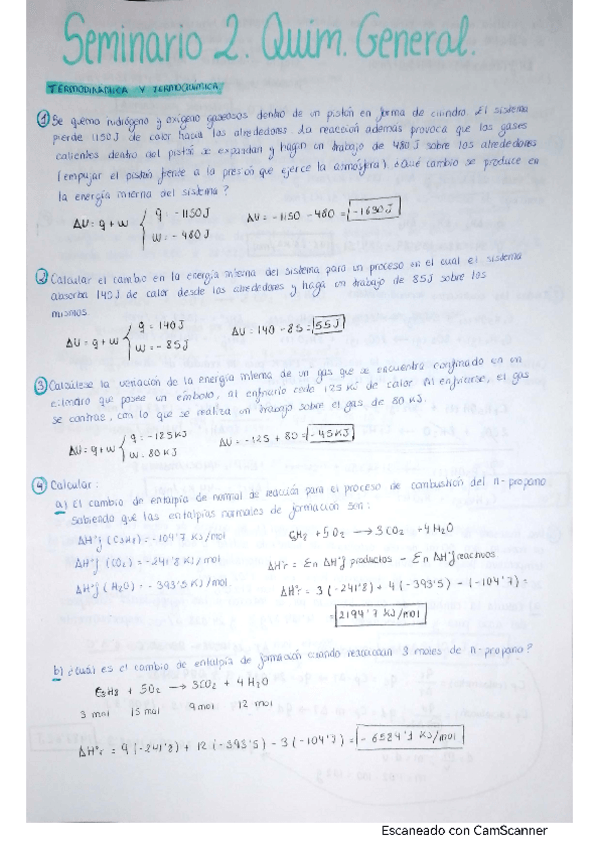 Seminario 2. Quim. General.
TERMODINÁMICA Y TERMOQUÍMICA
1) Se quema hidrógeno y oxígeno gaseosos dentro de un pistón en forma de cilindro. El sistema
pierde 1150 J de calor hacia los alrededores. La reacción además provoca que los gases
calientes dentro del pistón se expandan y hagan un trabajo de 480 J sobre los alrededores
(empujar el pistón frente a la presión que ejerce la atmósfera). ¿Qué cambio se produce en
la energía interna del sistema?
ΔU = q + w { q: -1150 J ΔU = -1150 - 480 = -1630 J
w = -480 J
2) Calcular el cambio en la energía interna del sistema para un proceso en el cual el sistema
absorba 140 J de calor desde los alrededores y haga un trabajo de 85 J sobre los
mismos.
ΔU = q + w { q = 140 J ΔU = 140 - 85 = 55 J
w = -85 J
3) Calcúlese la variación de la energía interna de un gas que se encuentra confinado en un
cilindro que posee un émbolo, al enfriarlo cede 125 KJ de calor. Al enfriarse, el gas
se contrae, con lo que se realiza un trabajo sobre el gas de 80 KJ.
ΔU = q + w { q: -125 KJ ΔU = -125 + 80 = -45 KJ
w: 80 KJ
4) Calcular:
a) El cambio de entalpía de normal de reacción para el proceso de combustión del n-propano
sabiendo que las entalpías normales de formación son:
ΔH°f (C3H8) = -104'7 KJ/mol C3H8 + 5O2 → 3CO2 + 4H2O
ΔH°f (CO2) = -241'8 KJ/mol ΔH°r = Σn ΔH°f productos - Σn ΔH°f reactivos
ΔH°f (H2O) = -393'5 KJ/mol. ΔH°r = 3(-241'8) + 4(-393'5) - (-104'7) =
= 2194'7 KJ/mol
b) ¿Cuál es el cambio de entalpía de formación cuando reaccionan 3 moles de n-propano?
C3H8 + 5O2 → 3CO2 + 4H2O
3 mol 15 mol 9 mol 12 mol
ΔH°r = 9(-241'8) + 12(-393'5) - 3(-104'7) = -6584'1 KJ/mol
Escaneado con CamScanner